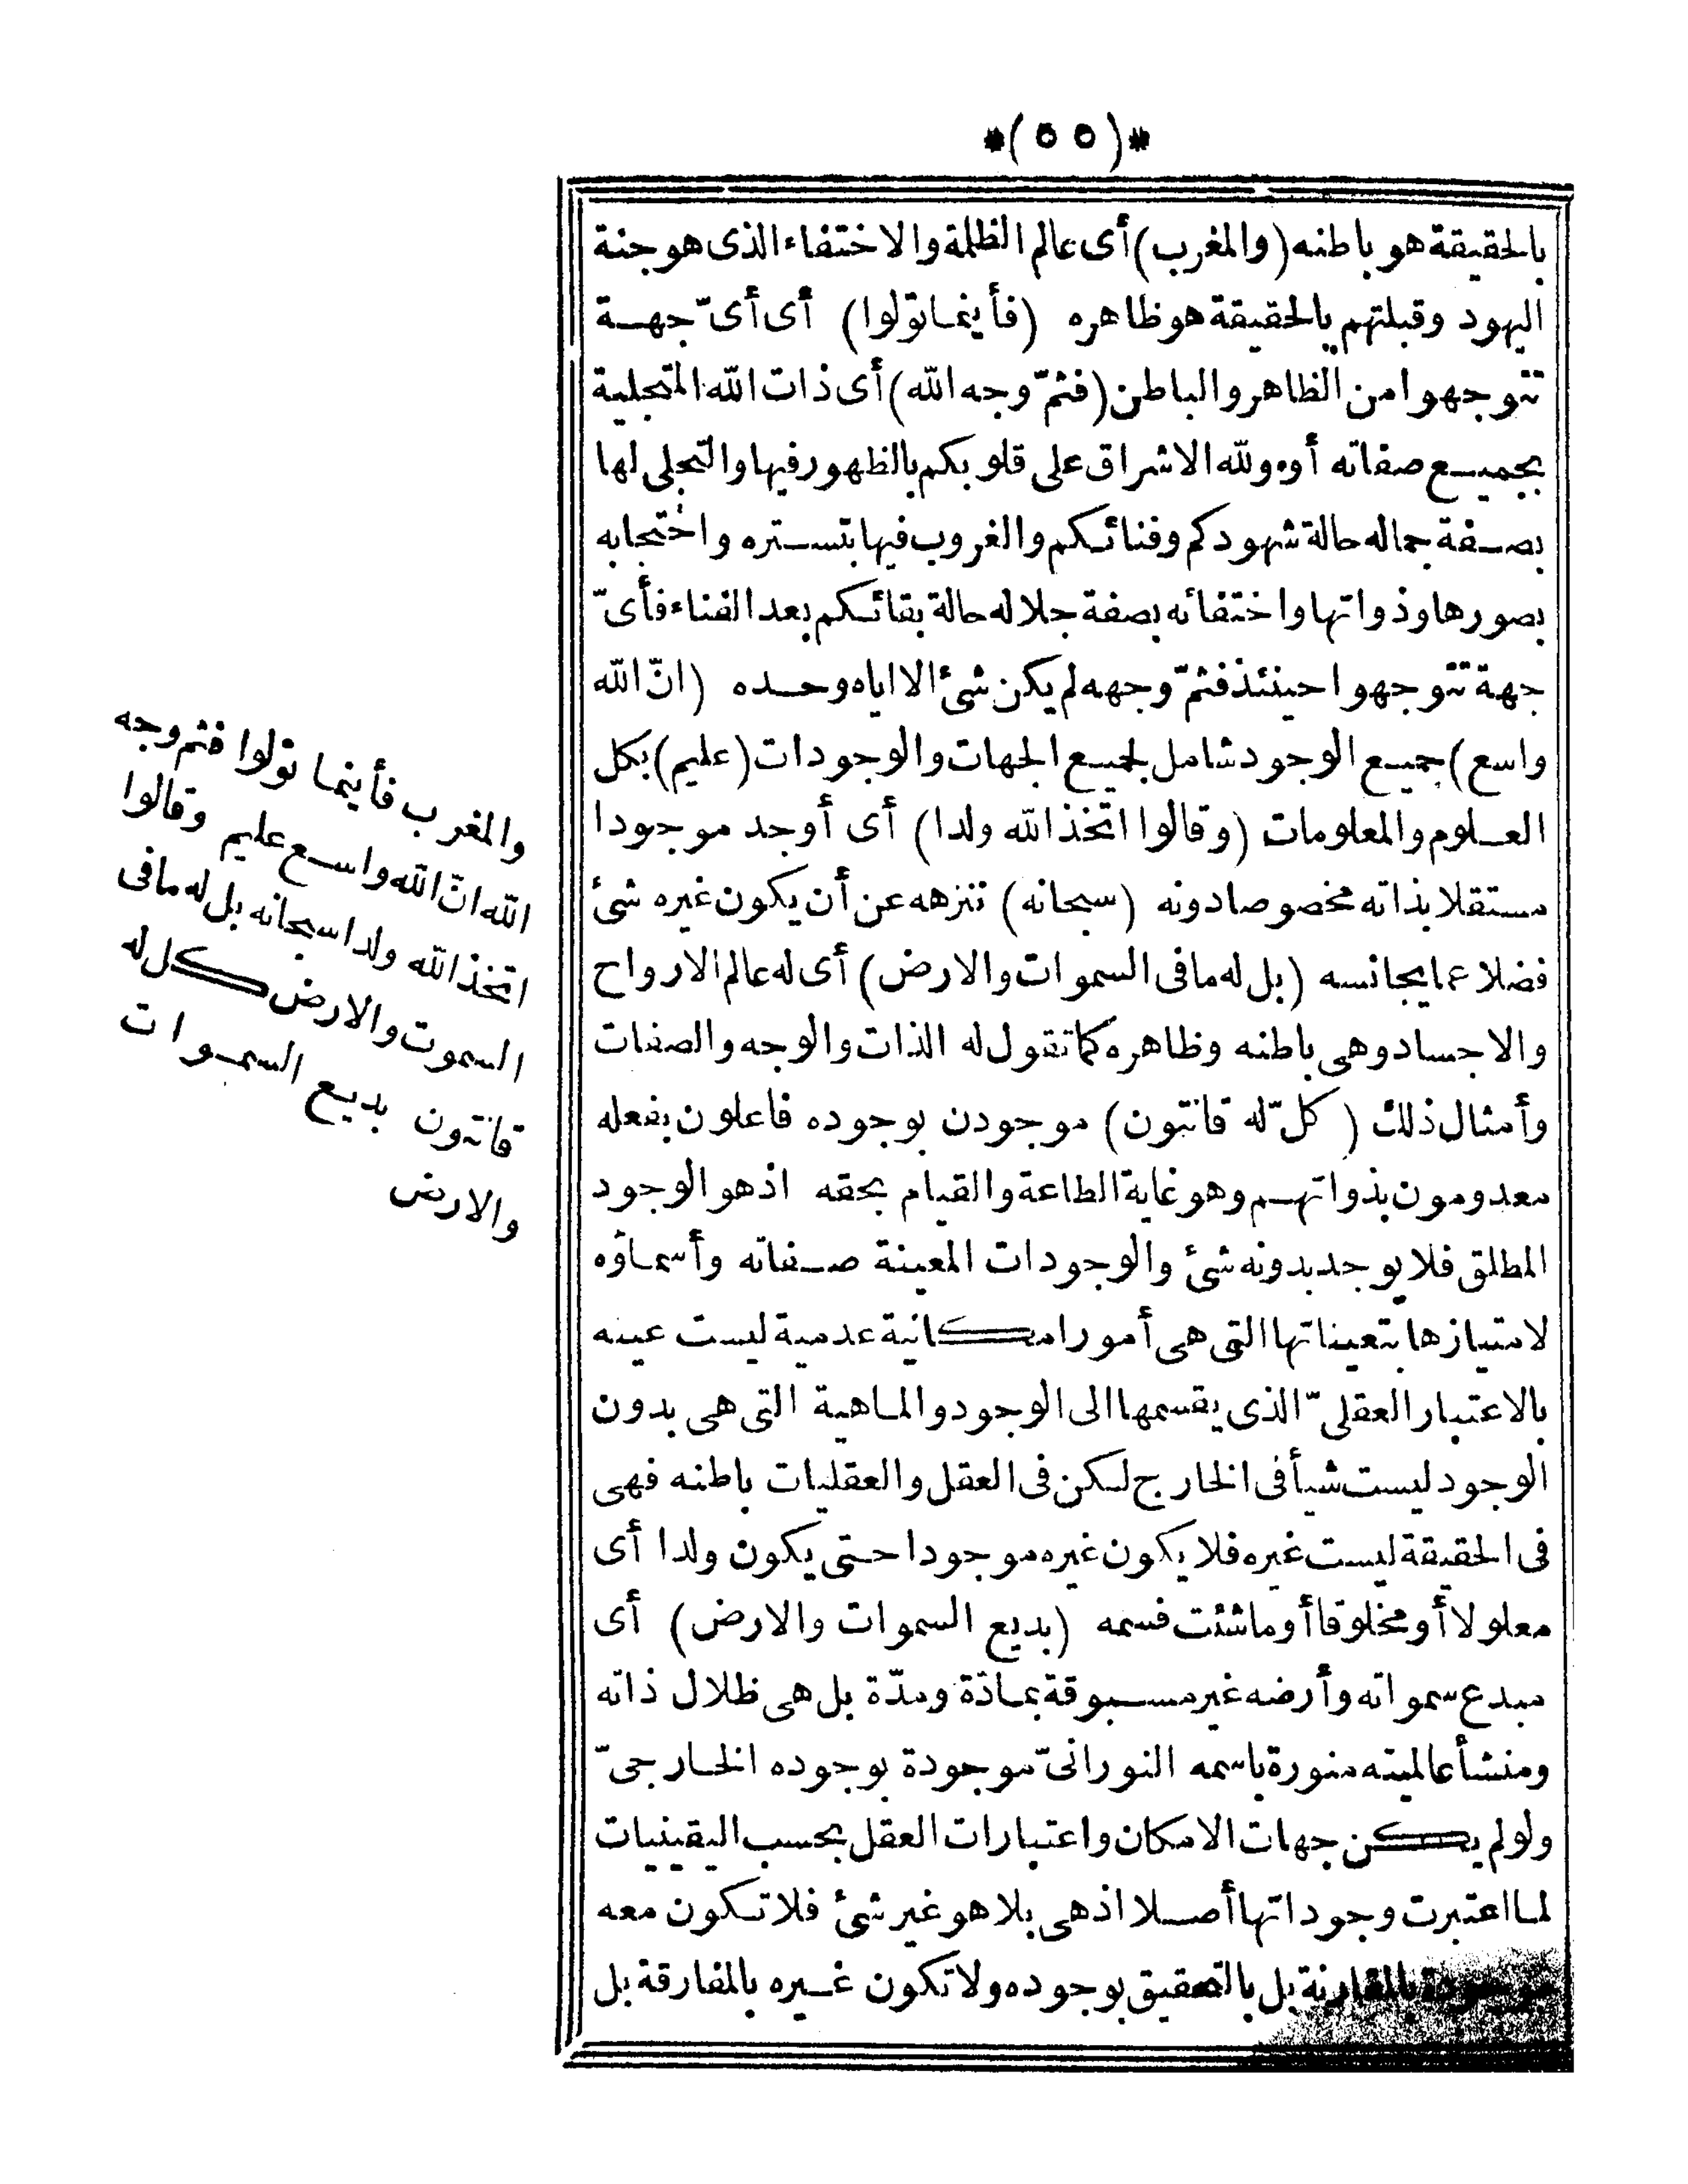 *(٥٥)*
بالحقيقة هو باطنه (والمغرب) أى عالم الظلمة والاختفاء الذى هو جنة
اليهود وقبلتهم بالحقيقة هو ظاهره (فأينما تولوا) أى أىّ جهة
تتوجهوا من الظاهر والباطن (فثمّ وجه الله) أى ذات الله المتجلية
بجميع صفاته أو ولله الاشراق على قلوبكم بالظهور فيها والتجلى لها
بصفة جماله حالة شهودكم وفنائكم والغروب فيها بتستره واحتجابه
بصورها وذواتها واختفائه بصفة جلاله حالة بقائكم بعد الفناء فأىّ
جهة تتوجهوا حينئذ فثمّ وجهه لم يكن شئ الا اياه وحده (انّ الله
واسع) جميع الوجود شامل لجميع الجهات والوجودات (عليم) بكل
العلوم والمعلومات (وقالوا اتخذ الله ولدا) أى أوجد موجودا
مستقلا بذاته مخصوصا دونه (سبحانه) تنزهه عن أن يكون غيره شئ
فضلا عما يجانسه (بل له ما فى السموات والارض) أى له عالم الارواح
والاجساد وهى باطنه وظاهره كما تقول له الذات والوجه والصفات
وأمثال ذلك (كلّ له قانتون) موجودن بوجوده فاعلون بفعله
معدومون بذواتهم وهو غاية الطاعة والقيام بحقه اذ هو الوجود
المطلق فلا يوجد بدونه شئ والوجودات المعينة صفاته وأسماؤه
لامتيازها بتعيناتها التى هى أمور امكانية عدمية ليست عينه
بالاعتبار العقلىّ الذى يقسمها الى الوجود والماهية التى هى بدون
الوجود ليست شيأ فى الخارج لكن فى العقل والعقليات باطنه فهى
فى الحقيقة ليست غيره فلا يكون غيره موجودا حتى يكون ولدا أى
معلولا أو مخلوقا أو ما شئت فسمه (بديع السموات والارض) أى
مبدع سمواته وأرضه غير مسبوقة بمادّة ومدّة بل هى ظلال ذاته
ومنشأ عالميته منورة باسمه النورانىّ موجودة بوجوده الخارجىّ
ولو لم يكن جهات الامكان واعتبارات العقل بحسب اليقينيات
لما اعتبرت وجوداتها أصلا اذ هى بلا هو غير شئ فلا تكون معه
موجودة بالمقارنة بل بالتحقيق بوجوده ولا تكون غيره بالمفارقة بل
والمغرب فأينما تولوا فثم وجه
الله انّ الله واسع عليم وقالوا
اتخذ الله ولدا سبحانه بل له ما فى
السموت والارض كل له
قانتون بديع السموات
والارض